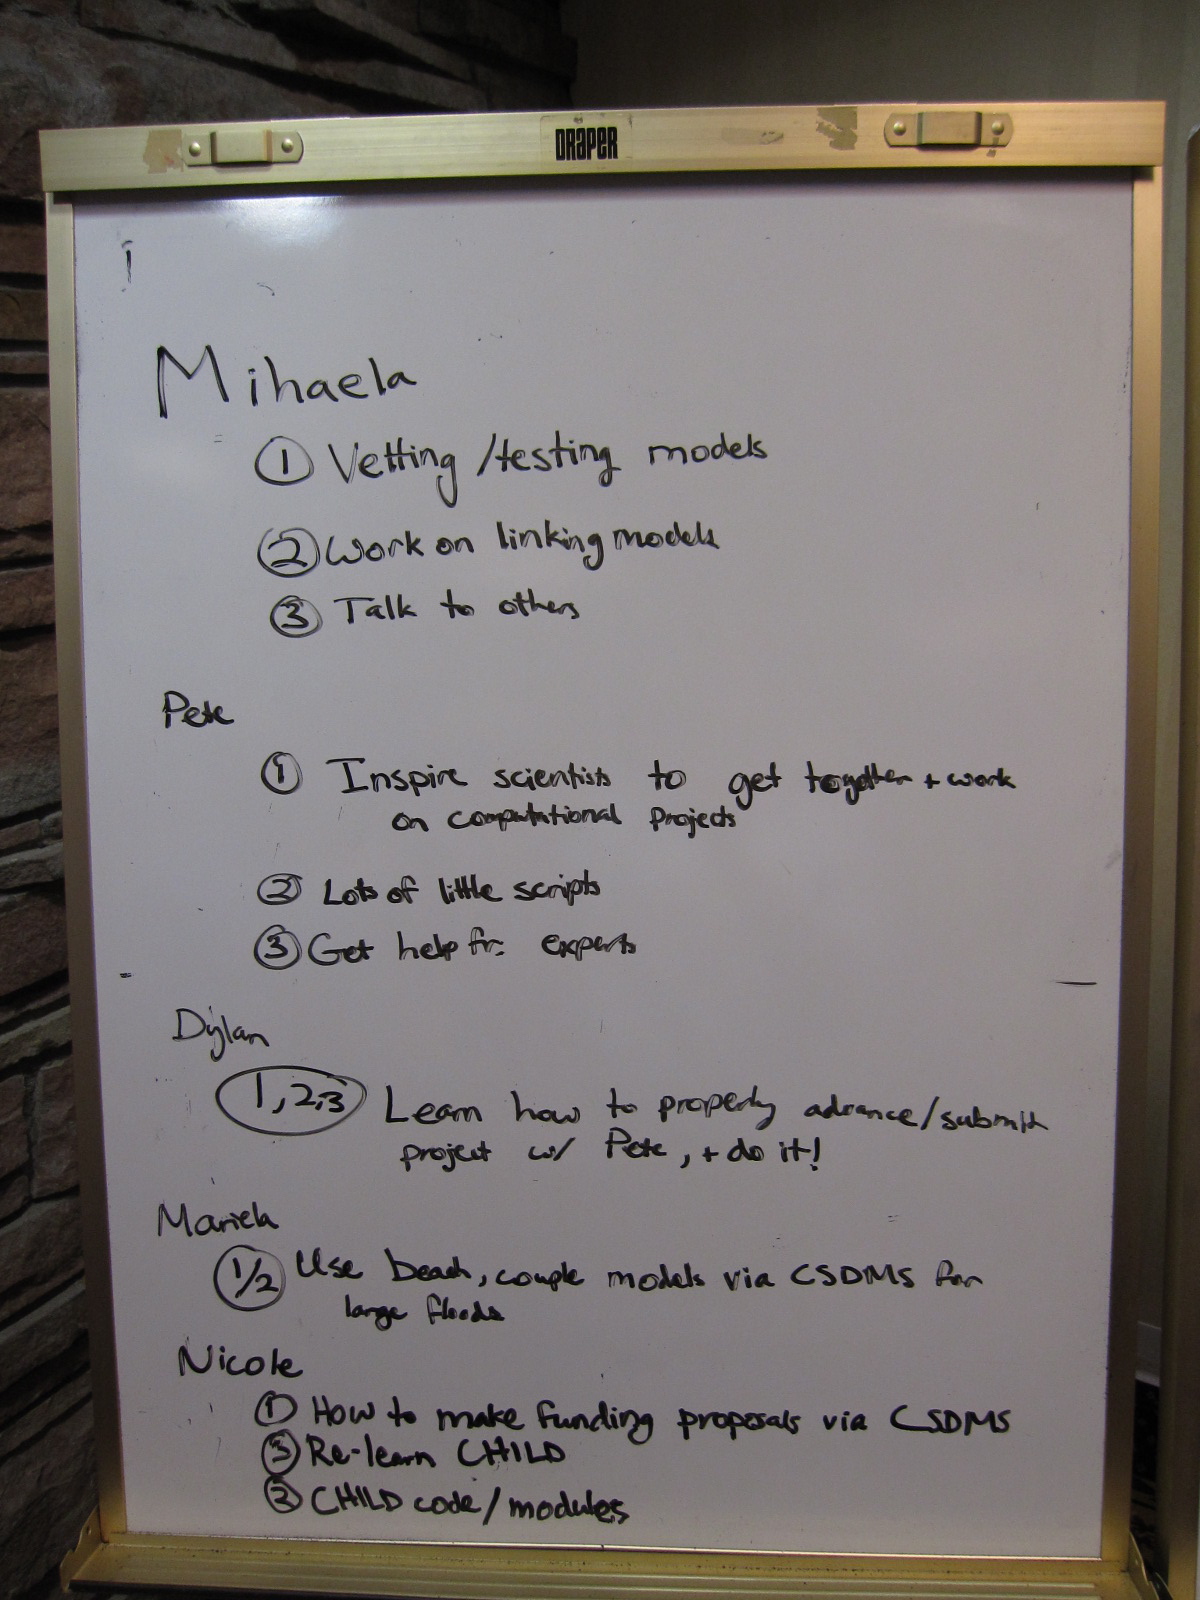 DRAPER
Mihaela
① Vetting/testing models
② Work on linking models
③ Talk to others
Pete
① Inspire scientists to get together + work
on computational Projects
② Lots of little scripts
③ Get help fr. experts
Dylan
1,2,3 Learn how to properly advance/submit
project w/ Pete, + do it!
Mariela
1/2 Use beach, couple models via CSDMS for
large floods
Nicole
① How to make funding proposals via CSDMS
③ Re-learn CHILD
② CHILD code/modules